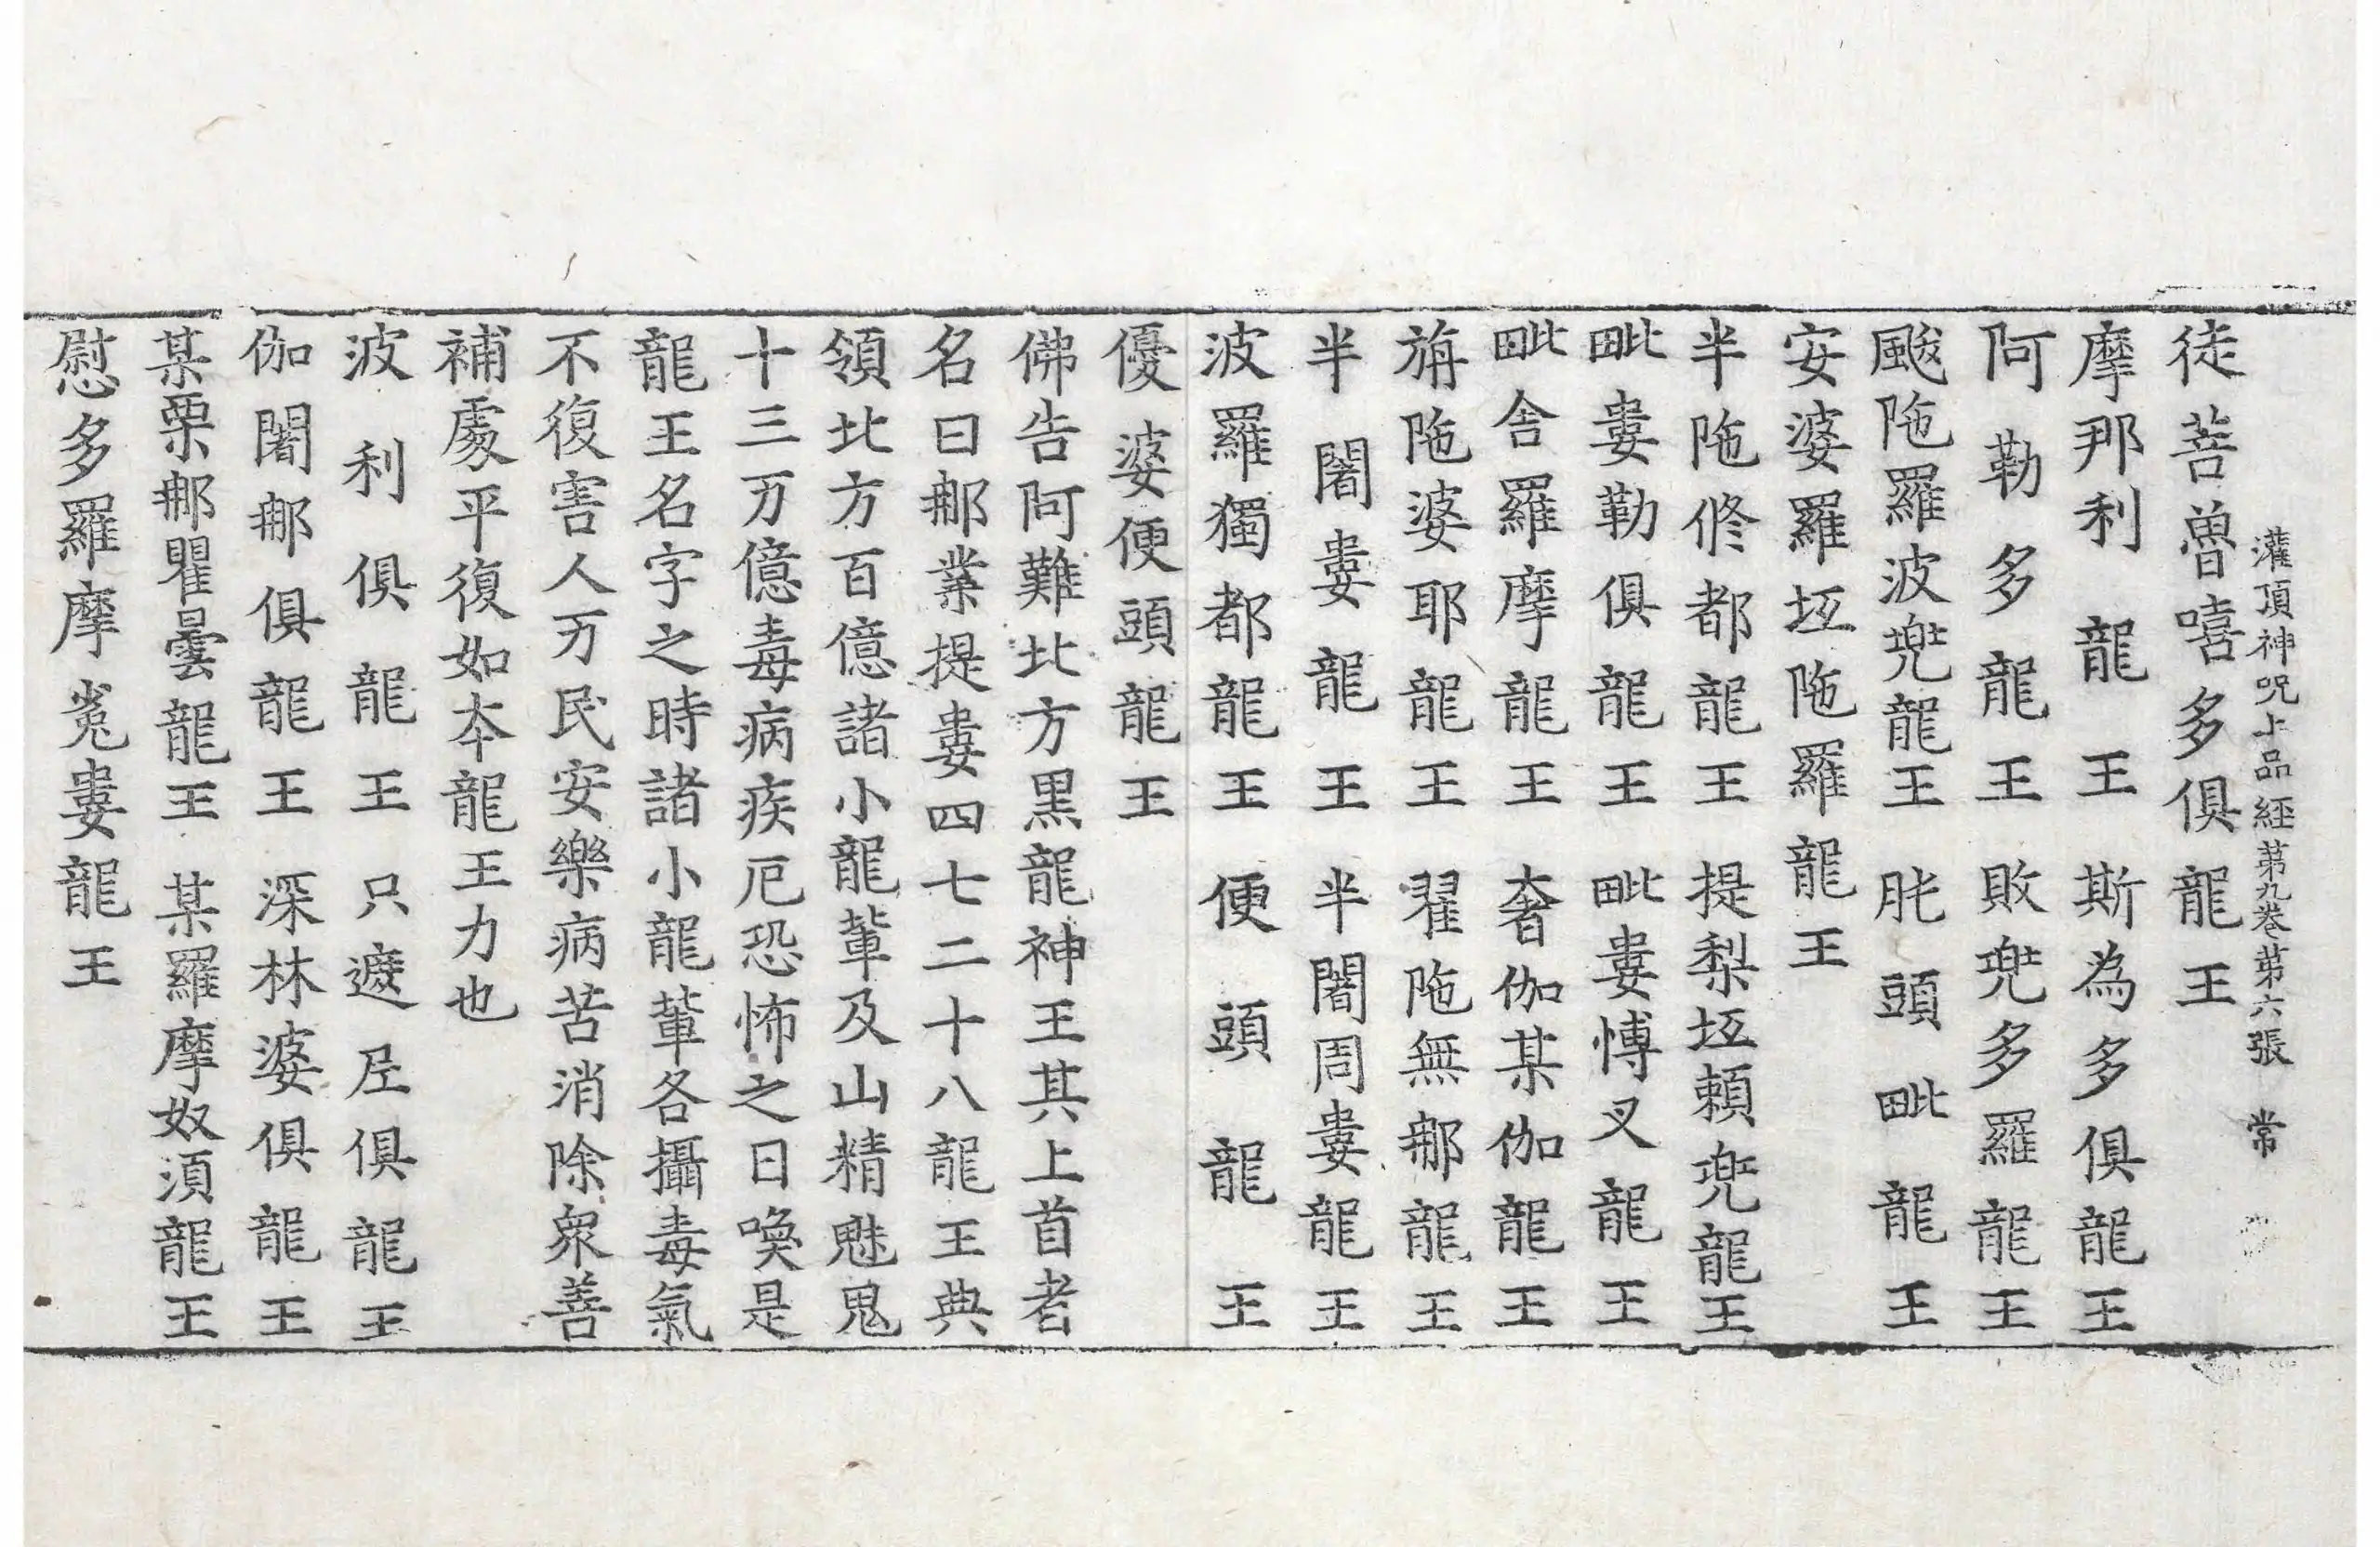 灌頂神呪上品經苐九卷苐六張　常
徒菩曾嘻多俱龍王
摩那利龍王　斯為多俱龍王
阿勒多龍王　敗兜多羅龍王
颰陁羅波兜龍王　肬頭毗龍王
安婆羅坘陁羅龍王
半陁修都龍王　提梨坘賴兜龍王
毗婁勒俱龍王　毗婁愽叉龍王
毗舍羅摩龍王　奢伽某伽龍王
旃陁婆耶龍王　翟陁無䣯龍王
半闍婁龍王　半闍周婁龍王
波羅獨都龍王　便頭龍王
優婆便頭龍王
佛告阿難北方黒龍神王其上首者
名曰䣯業提婁四七二十八龍王典
領北方百億諸小龍輩及山精魅鬼
十三万億毒病疾厄恐怖之日喚是
龍王名字之時諸小龍輩各攝毒氣
不復害人万民安樂病苦消除衆善
補處平復如夲龍王力也
波利俱龍王　只遮𡰱俱龍王
伽闍䣯俱龍王　深林婆俱龍王
某栗䣯瞿曇龍王　某羅摩奴湏龍王
慰多羅摩㝹婁龍王